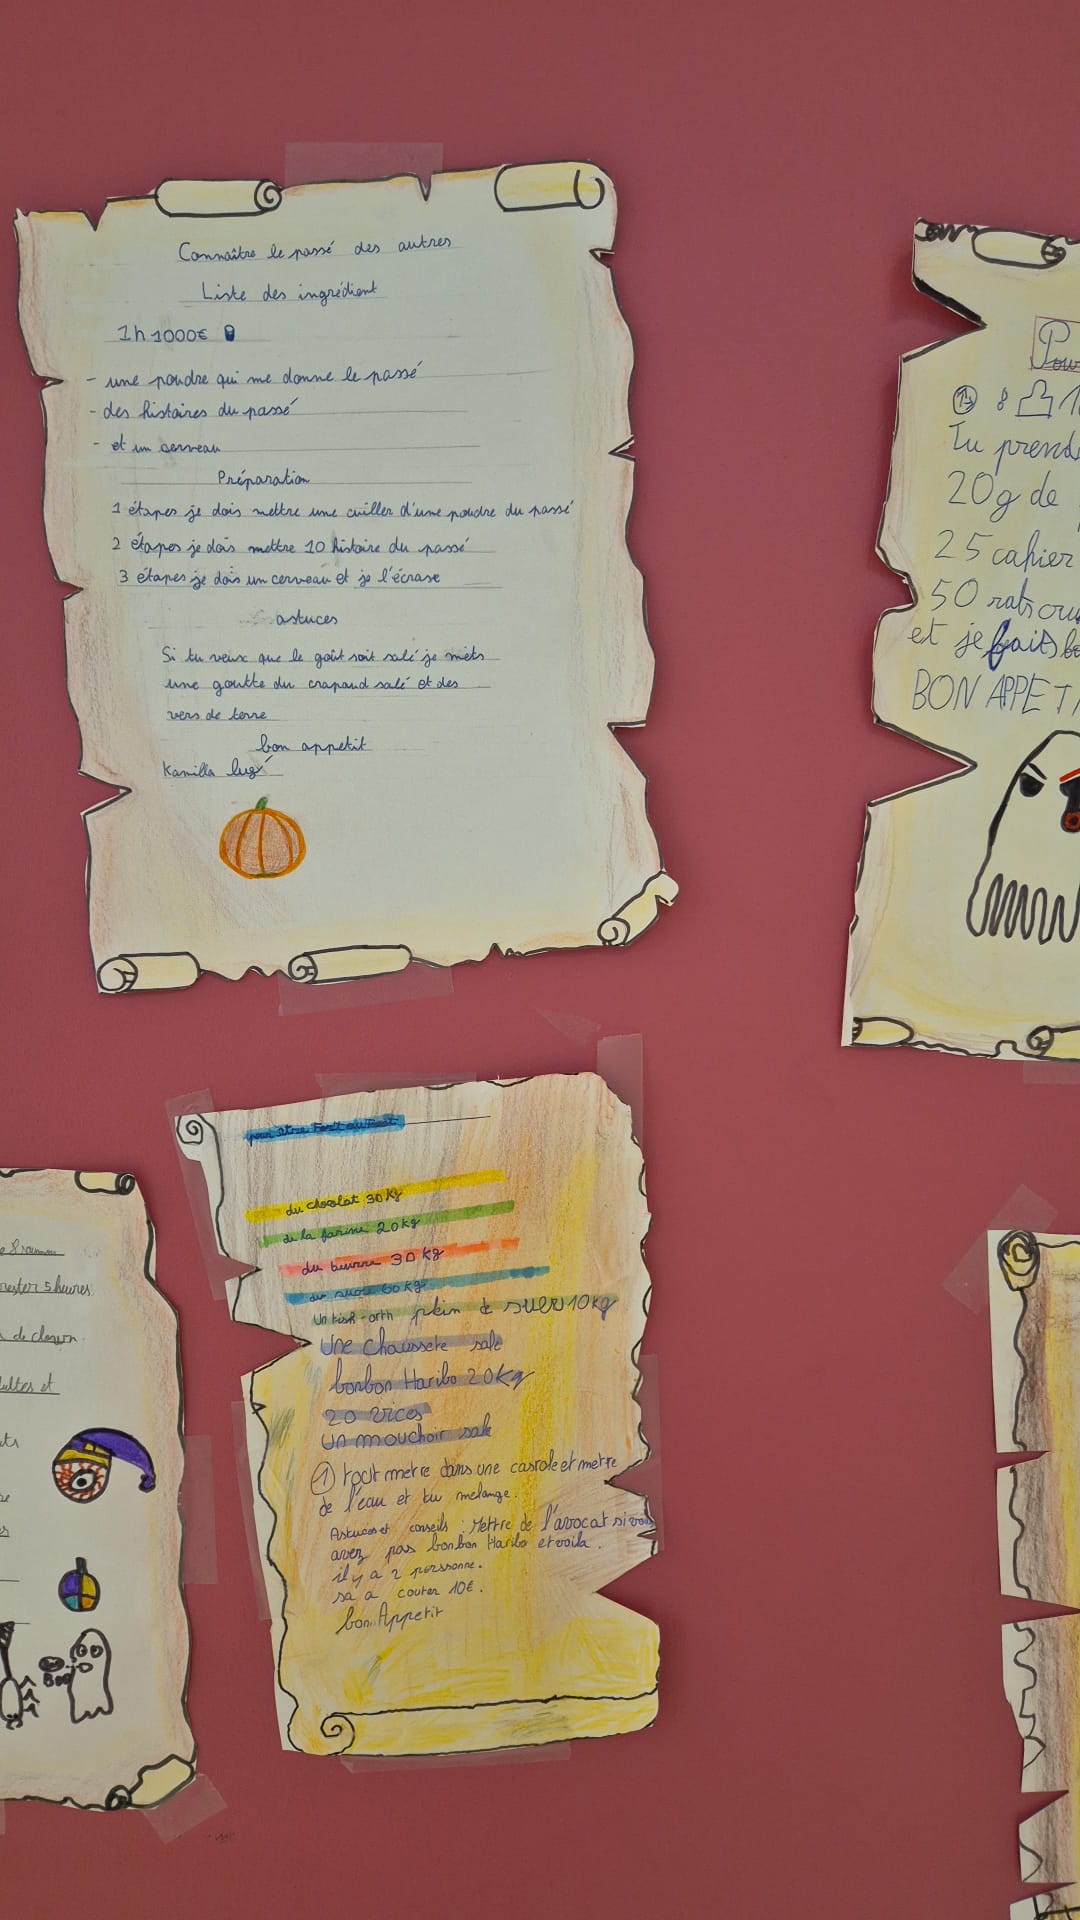 Connaître le passé des autres
Liste des ingrédient
1h 1000€
- une poudre qui me donne le passé
- des histoires du passé
- et un cerveau
Préparation
1 étapes je dois mettre une cuiller d'une poudre du passé
2 étapes je dois mettre 10 histoire du passé
3 étapes je dois un cerveau et je l'écrase
astuces
Si tu veux que le goût soit salé je mets
une goutte du crapaud salé et des
vers de terre
bon appetit
Kamilla
Pour
8
Tu prends
20g de
25 cahier
50 rats
et je faits
BON APPETI
pour être
du chocolat 30 kg
de la farine 20 kg
du beurre 30 kg
du sucre 60 kg
plein de 10 kg
Une chaussete sale
bonbon Haribo 20 Kg
20 vices
Un mouchoir sale
1 tout metre dans une casrole et metre
de l'eau et tu melange.
Astuces et conseils : Mettre de l'avocat si vous
avez pas bonbon Haribo et voila.
il y a 2 perssonne.
sa a couter 10€.
bon Appetit
rester 5 heures
de clown
et
Boo